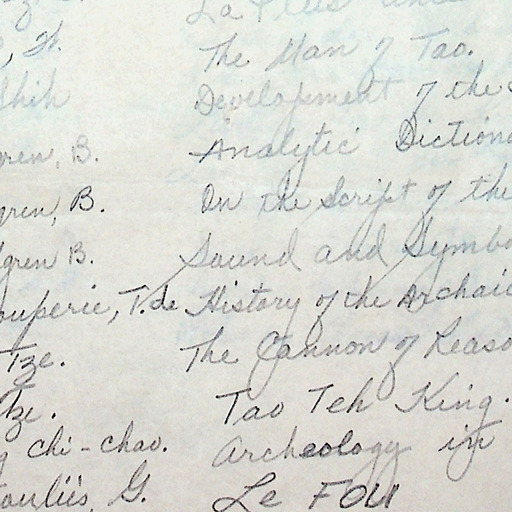 La
, H. The Man of Tao.
Shih Development of the
gren, B. Analytic Dictiona
gren, B. On the Script of the
lgren B. Sound and Symbo
ouperie, T. de History of the Archaic
Tze. The Cannon of Reaso
Tze. Tao Teh King.
g chi-chao. Archeology in
G. Le Fou